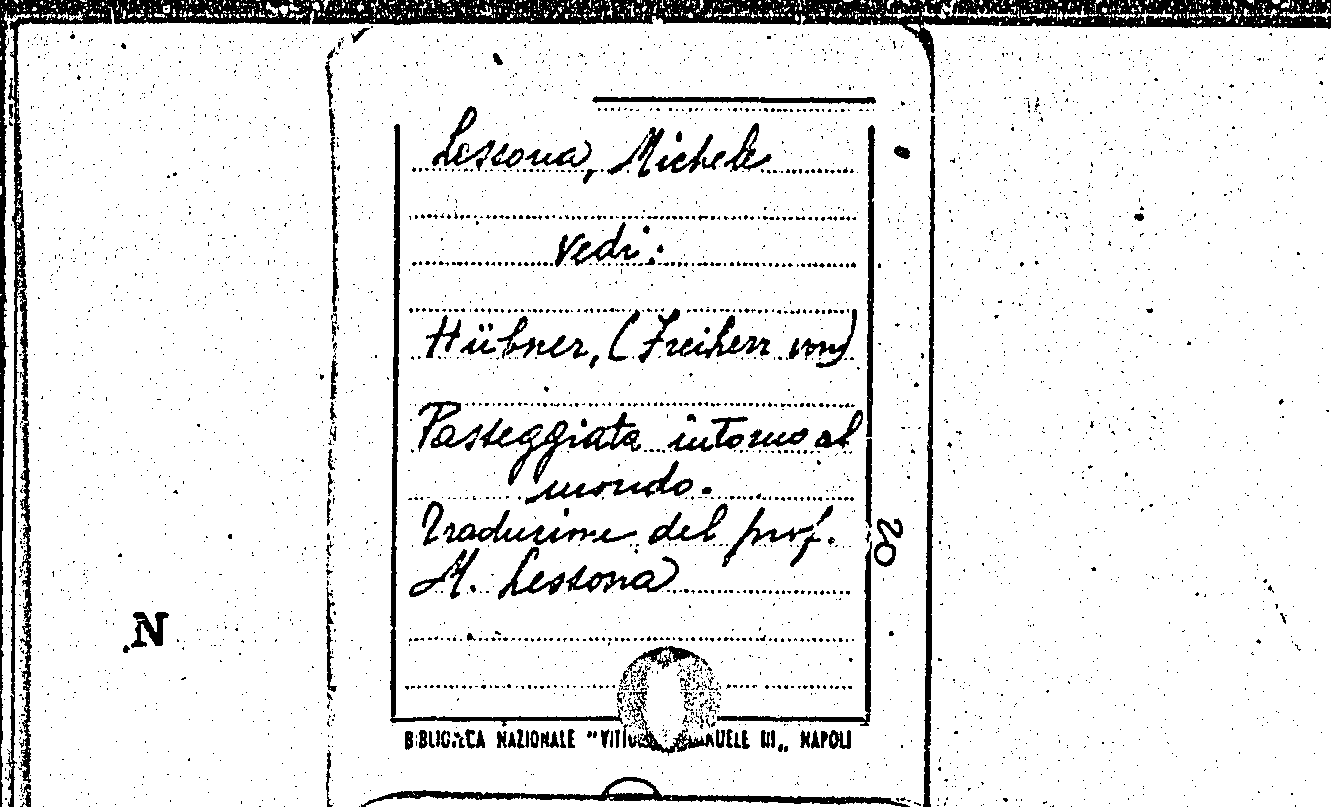 Lessona, Michele
vedi:
Hübner, (Freiherr von)
Passeggiata intorno al
mondo.
Traduzione del prof.
M. Lessona
20
N
BIBLIOTECA NAZIONALE "VITTORIO EMANUELE III„ NAPOLI